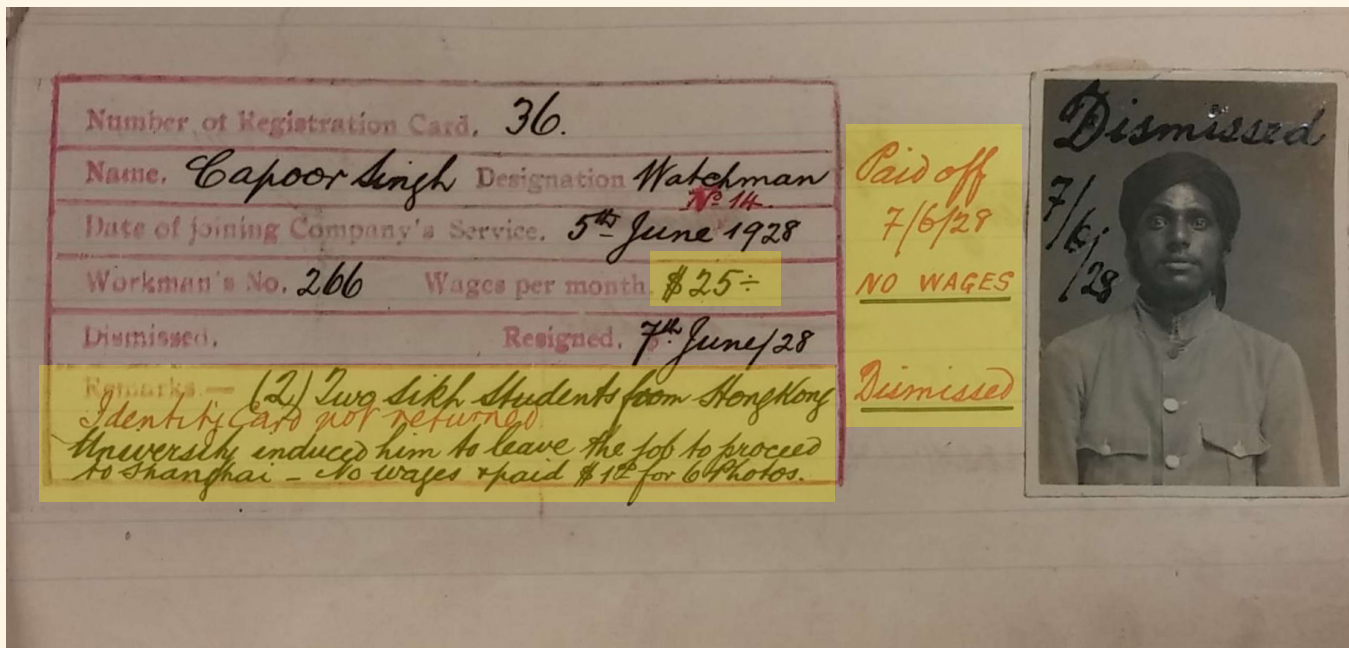 Number of Registration Card. 36.
Name. Capoor Singh Designation Watchman
No. 14.
Date of joining Company's Service. 5th June 1928
Workman's No. 266 Wages per month. $25÷
Dismissed. Resigned. 7th June/28
Remarks.— (2) Two Sikh students from HongKong
Identity Card not returned
University induced him to leave the job to proceed
to Shanghai - No wages & paid $1 for 6 Photos.
Paid off
7/6/28
NO WAGES
Dismissed
Dismissed
7/6/28